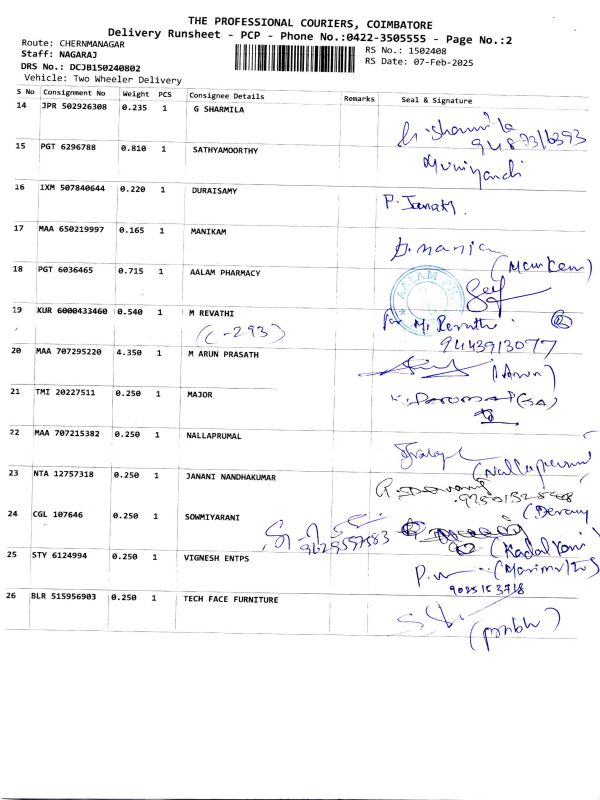 THE PROFESSIONAL COURIERS, COIMBATORE
Delivery Runsheet - PCP - Phone No.:0422-3505555 - Page No.:2
Route: CHERNMANAGAR RS No.: 1502408
Staff: NAGARAJ RS Date: 07-Feb-2025
DRS No.: DCJB150240802
Vehicle: Two Wheeler Delivery
S No Consignment No Weight PCS Consignee Details Remarks Seal & Signature
14 JPR 502926308 0.235 1 G SHARMILA
G. Sharmila
9487316393
15 PGT 6296788 0.810 1 SATHYAMOORTHY
Muniyandi
16 IXM 507840644 0.220 1 DURAISAMY
P. Janaki.
17 MAA 650219997 0.165 1 MANIKAM
18 PGT 6036465 0.715 1 AALAM PHARMACY
AALAM
19 KUR 6000433460 0.540 1 M REVATHI
(C-293)
for M. Revathi
9443913077
20 MAA 707295220 4.350 1 M ARUN PRASATH
(Arun)
21 TMI 20227511 0.250 1 MAJOR
22 MAA 707215382 0.250 1 NALLAPRUMAL
(Nallaperumal
23 NTA 12757318 0.250 1 JANANI NANDHAKUMAR
24 CGL 107646 0.250 1 SOWMIYARANI
9629557583
25 STY 6124994 0.250 1 VIGNESH ENTPS
9025153718
26 BLR 515956903 0.250 1 TECH FACE FURNITURE
(prabhu)